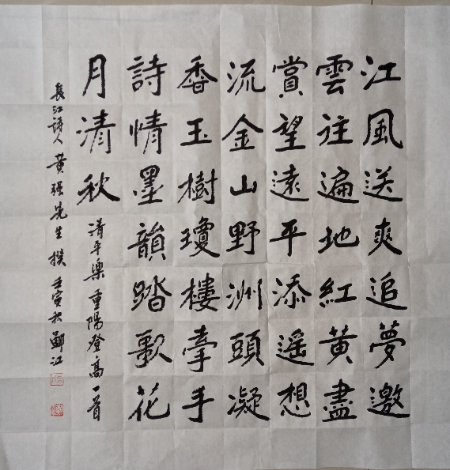 江風送爽追夢邀
雲往遍地紅黃盡
賞望遠平添遥想
流金山野洲頭凝
香玉樹瓊樓牽手
詩情墨韻踏歌花
月清秋 清平樂重陽登高一首
長江詩人黄强先生撰 壬寅秋